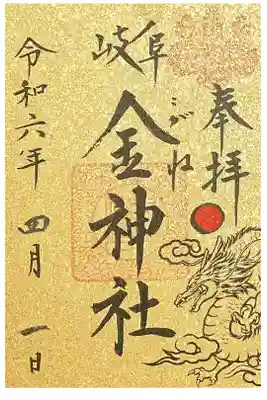 奉拝
岐阜
金神社
こがね
令和六年 四月 一日